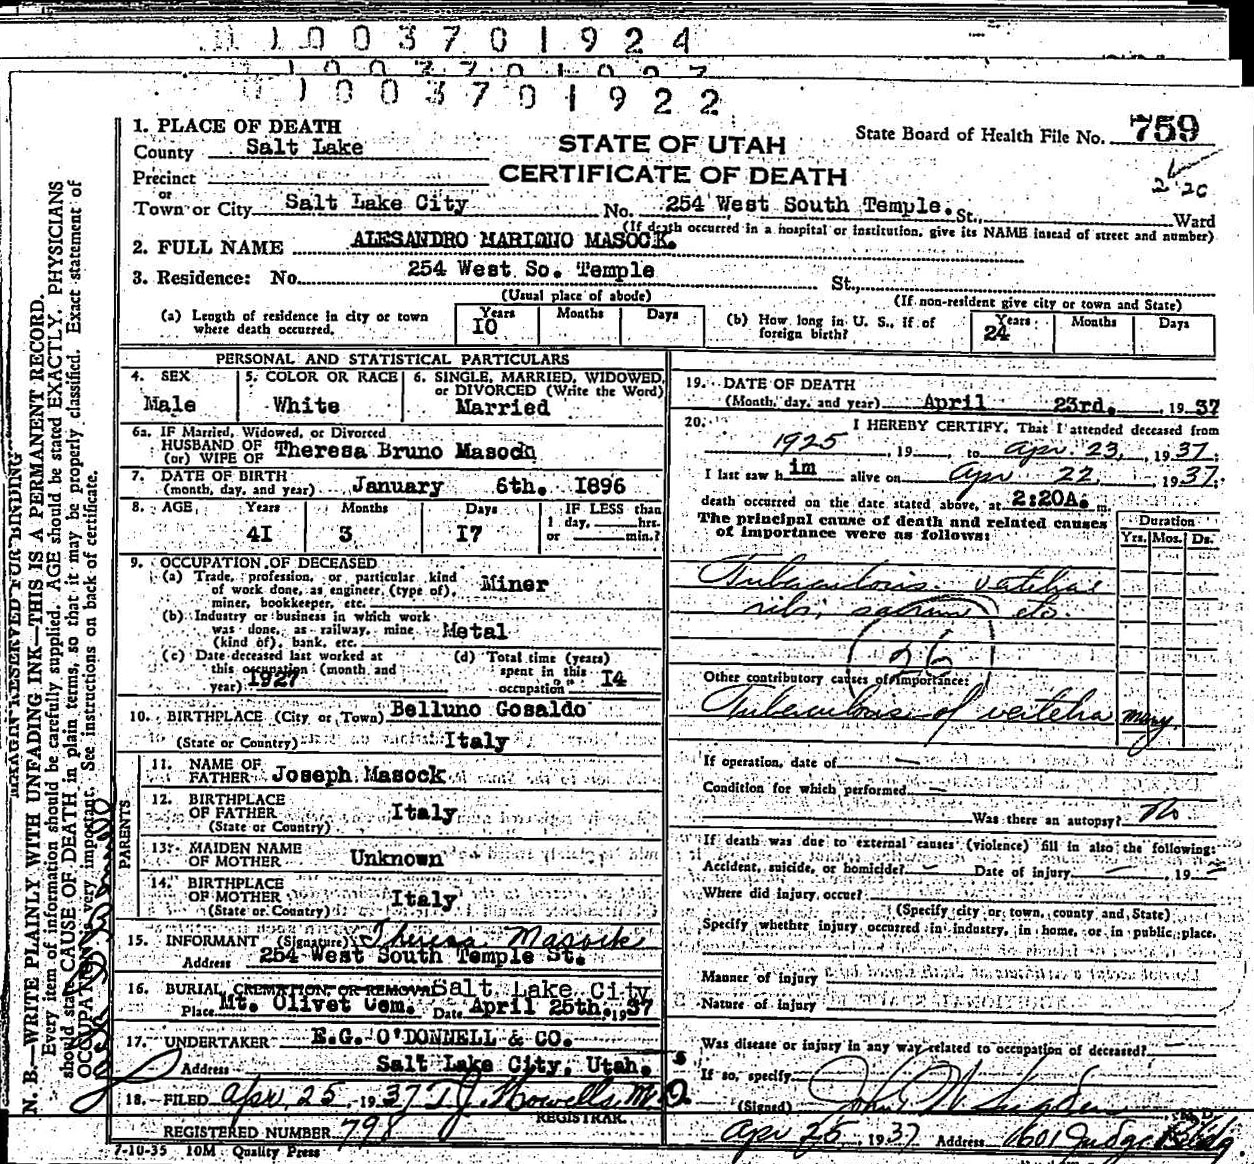 1003701924
1003701922
1. PLACE OF DEATH
County Salt Lake
STATE OF UTAH
State Board of Health File No. 759
Precinct
CERTIFICATE OF DEATH
or
Town or City Salt Lake City No. 254 West South Temple. St., Ward
(If death occurred in a hospital or institution, give its NAME instead of street and number)
2. FULL NAME ALESANDRO MARIONO MASOCK.
3. Residence: No. 254 West So. Temple St.,
(Usual place of abode) (If non-resident give city or town and State)
(a) Length of residence in city or town where death occurred. Years 10 Months Days (b) How long in U. S., if of foreign birth? Years 24 Months Days
PERSONAL AND STATISTICAL PARTICULARS
4. SEX 5. COLOR OR RACE 6. SINGLE, MARRIED, WIDOWED, or DIVORCED (Write the Word)
Male White Married
6a. IF Married, Widowed, or Divorced
HUSBAND OF
(or) WIFE OF Theresa Bruno Masock
7. DATE OF BIRTH
(month, day, and year) January 6th. 1896
8. AGE Years Months Days IF LESS than
1 day, hrs.
or min.?
41 3 17
9. OCCUPATION OF DECEASED
(a) Trade, profession, or particular kind
of work done, as engineer, (type of),
miner, bookkeeper, etc. Miner
(b) Industry or business in which work
was done, as railway, mine
(kind of), bank, etc. Metal
(c) Date deceased last worked at
this occupation (month and
year) 1927
(d) Total time (years)
spent in this
occupation 14
10. BIRTHPLACE (City or Town) Belluno Gosaldo
(State or Country) Italy
PARENTS
11. NAME OF
FATHER Joseph Masock
12. BIRTHPLACE
OF FATHER Italy
(State or Country)
13. MAIDEN NAME
OF MOTHER Unknown
14. BIRTHPLACE
OF MOTHER Italy
(State or Country)
15. INFORMANT (Signature) Theresa Masock
Address 254 West South Temple St.
16. BURIAL, CREMATION, OR REMOVAL Salt Lake City
Place Mt. Olivet Cem. Date April 25th. 1937
17. UNDERTAKER E.G. O'DONNELL & CO.
Address Salt Lake City, Utah.
18. FILED Apr. 25, 1937 T J Howells, M. D.
REGISTRAR.
REGISTERED NUMBER 798
7-10-35 10M Quality Press
19. DATE OF DEATH
(Month, day, and year) April 23rd. , 1937
20. I HEREBY CERTIFY, That I attended deceased from
1925 , 19 to Apr. 23, 1937.
I last saw him alive on Apr 22, 1937.
death occurred on the date stated above, at 2:20A. m.
The principal cause of death and related causes
of importance were as follows:
Duration
Yrs. Mos. Ds.
Tuberculosis vertebrae
ribs, sacrum etc.
26
Other contributory causes of importance:
Tuberculosis of vertebra many
If operation, date of
Condition for which performed
Was there an autopsy? No
If death was due to external causes (violence) fill in also the following:
Accident, suicide, or homicide? Date of injury , 19
Where did injury occur?
(Specify city or town, county and State)
Specify whether injury occurred in industry, in home, or in public place.
Manner of injury
Nature of injury
Was disease or injury in any way related to occupation of deceased?
If so, specify
(Signed) M. D.
Apr 25, 1937 Address 1601 Judge Bldg
MARGIN RESERVED FOR BINDING
N. B.—WRITE PLAINLY WITH UNFADING INK—THIS IS A PERMANENT RECORD.
Every item of information should be carefully supplied. AGE should be stated EXACTLY. PHYSICIANS
should state CAUSE OF DEATH in plain terms, so that it may be properly classified. Exact statement of
OCCUPATION is very important. See instructions on back of certificate.